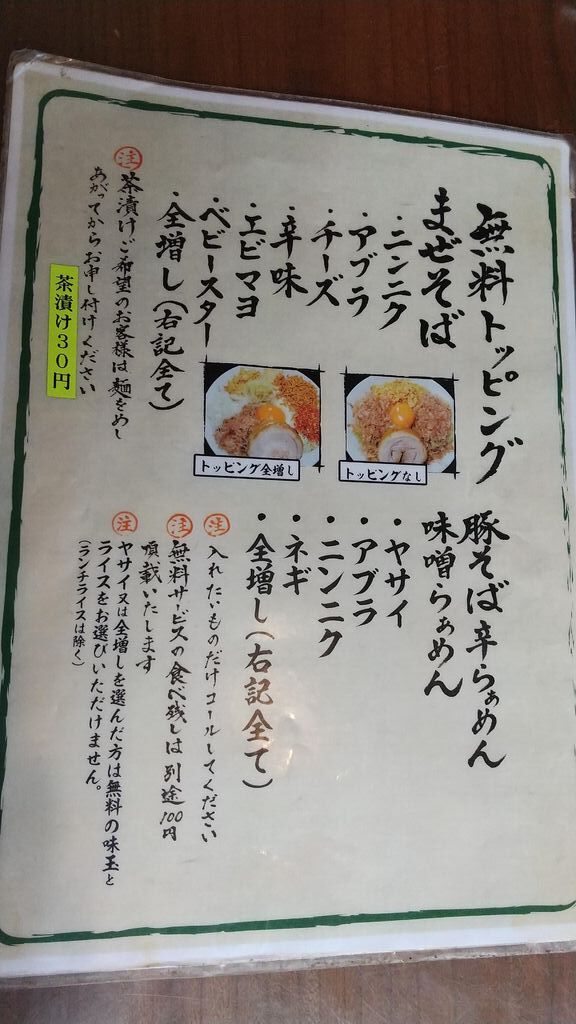 無料トッピング
まぜそば
・ニンニク
・アブラ
・チーズ
・辛味
・エビマヨ
・ベビースター
・全増し（右記全て）
トッピングなし
トッピング全増し
注 茶漬けご希望のお客様は麺をめし
あがってからお申し付けください
茶漬け30円
豚そば 辛らぁめん
味噌らぁめん
・ヤサイ
・アブラ
・ニンニク
・ネギ
・全増し（右記全て）
注 入れたいものだけコールしてください
注 無料サービスの食べ残しは別途100円
頂載いたします
注 ヤサイ又は全増しを選んだ方は無料の味玉と
ライスをお選びいただけません。
（ランチライスは除く）